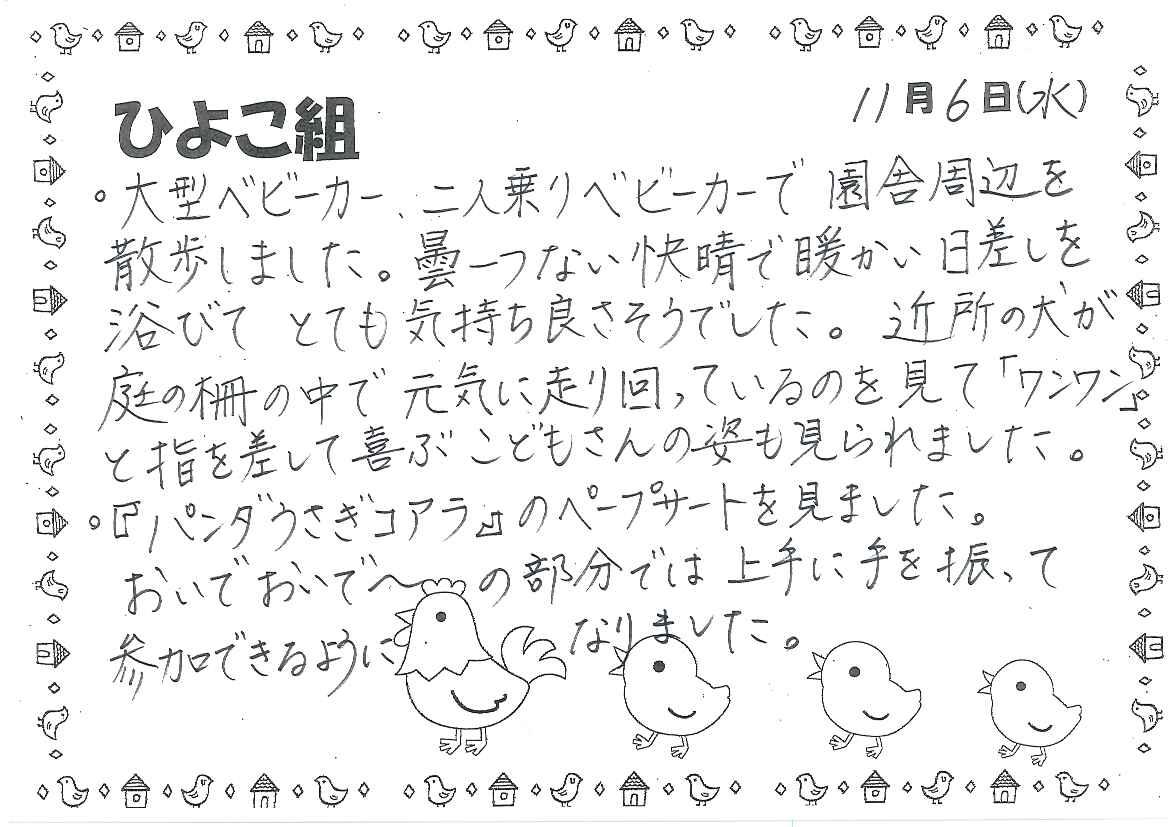 11月6日(水)
ひよこ組
。大型ベビーカー、二人乗りベビーカーで園舎周辺を
散歩しました。曇一つない快晴で暖かい日差しを
浴びて とても気持ち良さそうでした。近所の犬が
庭の柵の中で元気に走り回っているのを見て「ワンワン」
と指を差して喜ぶこどもさんの姿も見られました。
。『パンダうさぎコアラ』のペープサートを見ました。
おいでおいで〜の部分では上手に手を振って
参加できるようになりました。